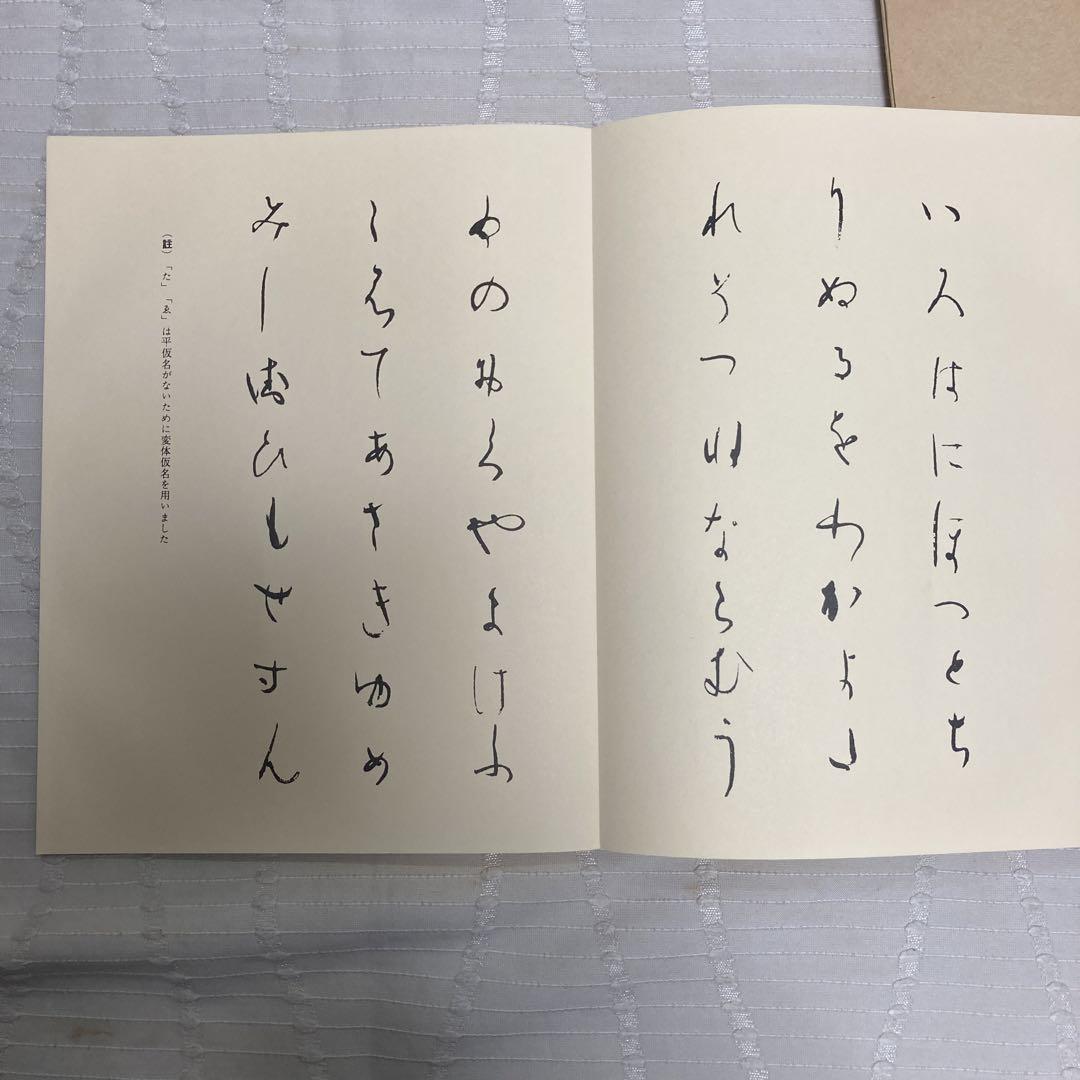 いろはにほへとち
りぬるをわかよた
れそつねならむう
ゐのおくやまけふ
こえてあさきゆめ
みしゑひもせすん
(註)「た」「ゑ」は平仮名がないために変体仮名を用いました